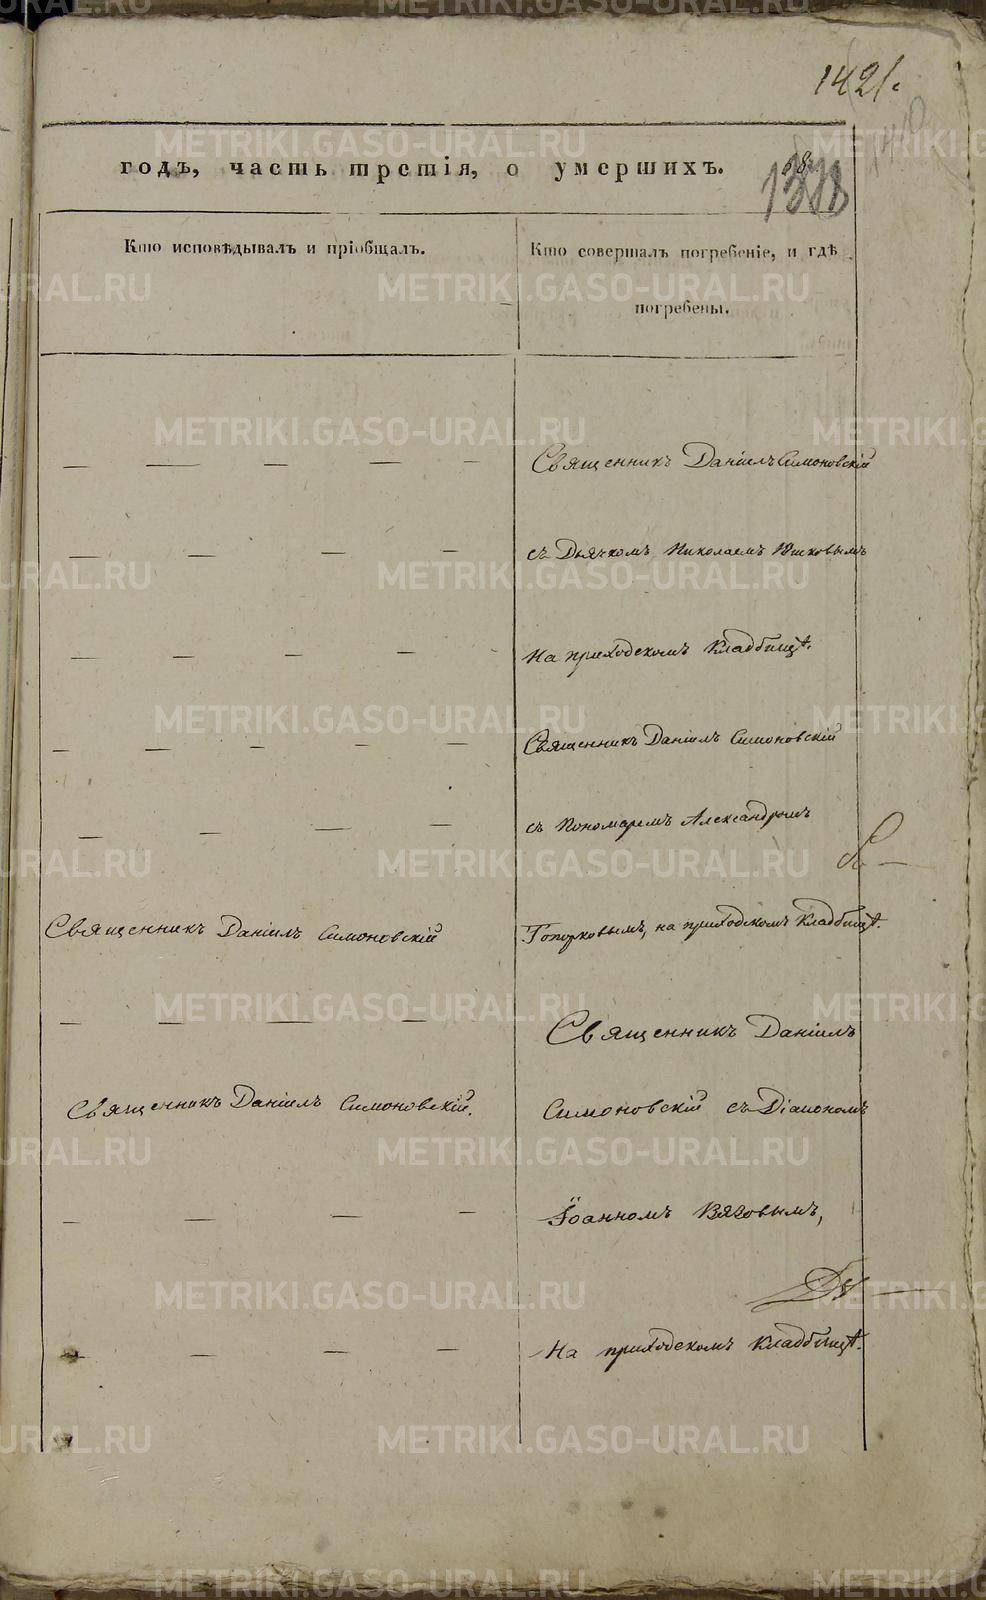 1421.
годъ, часть третія, о умершихъ.
Кто исповѣдывалъ и пріобщалъ.
Кто совершалъ погребеніе, и гдѣ
погребены.
Священникъ Даніилъ Симоновскій
съ Дьячкомъ Николаемъ Юшковымъ
на приходскомъ кладбищѣ.
Священникъ Даніилъ Симоновскій
съ Пономаремъ Александромъ
Священникъ Даніилъ Симоновскій
Топорковымъ, на приходскомъ кладбищѣ.
Священникъ Даніилъ
Священникъ Даніилъ Симоновскій.
Симоновскій съ Діакономъ
Іоанномъ Вяговымъ,
на приходскомъ кладбищѣ.
METRIKI.GASO-URAL.RU